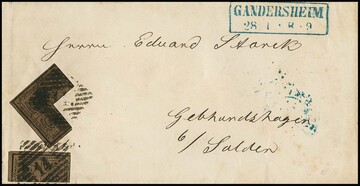 GANDERSHEIM
28 1 8-9
Herrn Eduard Storck
Gebhardshagen
b/ Salder